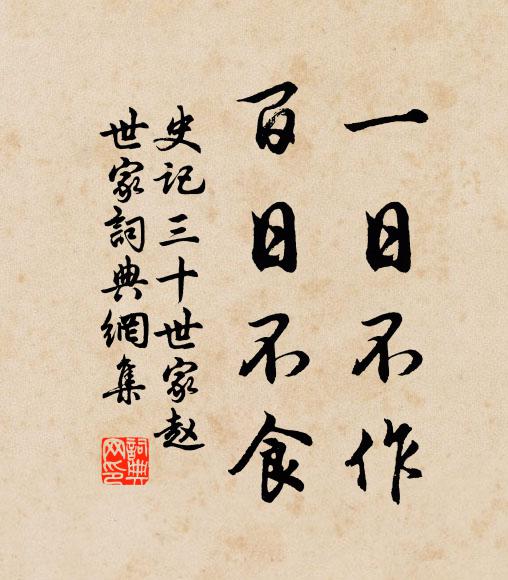 一日不作
百日不食
史记三十世家赵
世家詞典網集
詞典网印